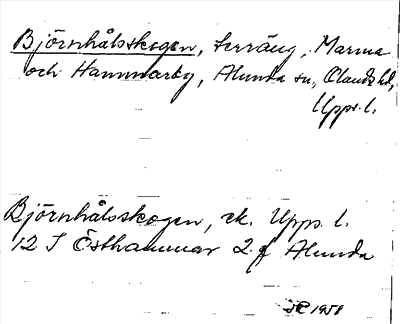 Björnhålsskogen, terräng, Marma
och Hammarby, Alunda sn, Olands hd,
Upps. l.
Björnhålsskogen, ek. Upps. l.
12 I Östhammar 2 f Alunda
1958